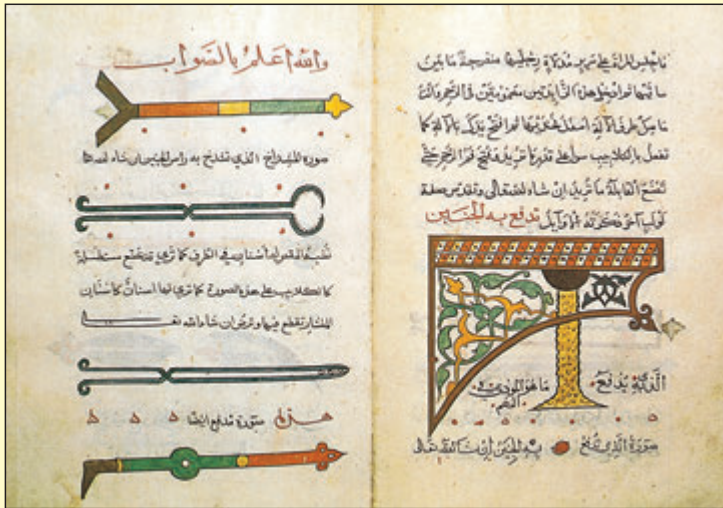 فاجلس المراة على سرير مدلاة رجليها منفرجة ما بين
ساقيها ثم ادخل هذه الزايدتين مضمومتين في الرحم وانت
ماسك طرف الالة اسفل ثم افتح يدك بالالة كما
تفعل بالكلاليب سوا على قدر ما تريد فتح فم الرحم حتى
تصنع القابلة ما تريد ان شاء الله تعالى صفة
لولب اخر ذكرته الاوايل تدفع به الجنين
الذي يدفع ما هو
صورة الذي به الجنين ان شاء الله تعالى
والله اعلم بالصواب
صورة المشداخ الذي تشدخ به راس الجنين ان شاء الله
له اسنان في الطرف كما ترى وقد تصنع مستطيلة
كالكلاليب على هذه الصورة كما ترى لها اسنان كاسنان
المنشار تقطع بها وترض ان شاء الله
صورة مدفع ايضا